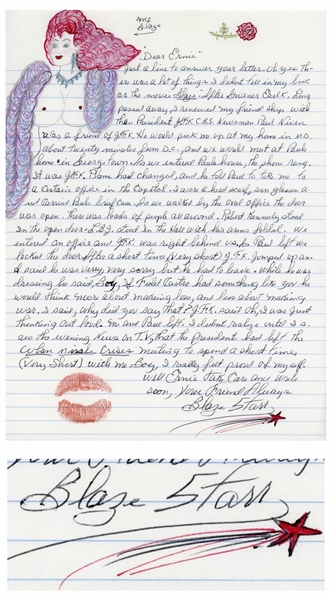 me
Blaze
"Dear Ernie"
Just a line to answer your letter. Oh yes. Th-
ere was a lot of things I didn't tell in my book
or the movie Blaze. After Governor Earl K. Long
passed away, I renewed my friend ship with
then President J.F.K. C.B.S. Newsman Paul Niven
was a friend of J.F.K. He would pick me up at my home in MD.
about twenty minutes from D.C., and we would meet at Pauls
home in Georgetown. As we entered Pauls house, the phone rang.
It was J.F.K. Plans had changed, and he told Paul to take me to
a certain office in the Capitol. I wore a head scarf, sun glasses and
carried Pauls brief case. As we walked by the oval office the door
was open. There was loads of people all around. Robert Kennedy stood
in the open door. L.B.J. stood in the Hall with his arms folded. We
entered an office and J.F.K. was right behind us. As Paul left we
locked the door. After a short time, (Very short) J.F.K. jumped up an-
d said he was very, very sorry but he had to leave. While he was
dressing he said, Boy, if Fidel Castro had something like you he
would think more about making love, and less about making
war. I said, Why did you say that? J.F.K. said oh, I was just
thinking out loud. Me and Paul left. I didn't realize until I s-
aw the evening news on T.V. that the President had left the
Cuban missile Crises meeting to spend a short time,
(Very Short) with me. Boy, I really felt proud of my self.
Well Ernie Take Care and write
soon, Your Friend Always
Blaze Starr
Blaze Starr